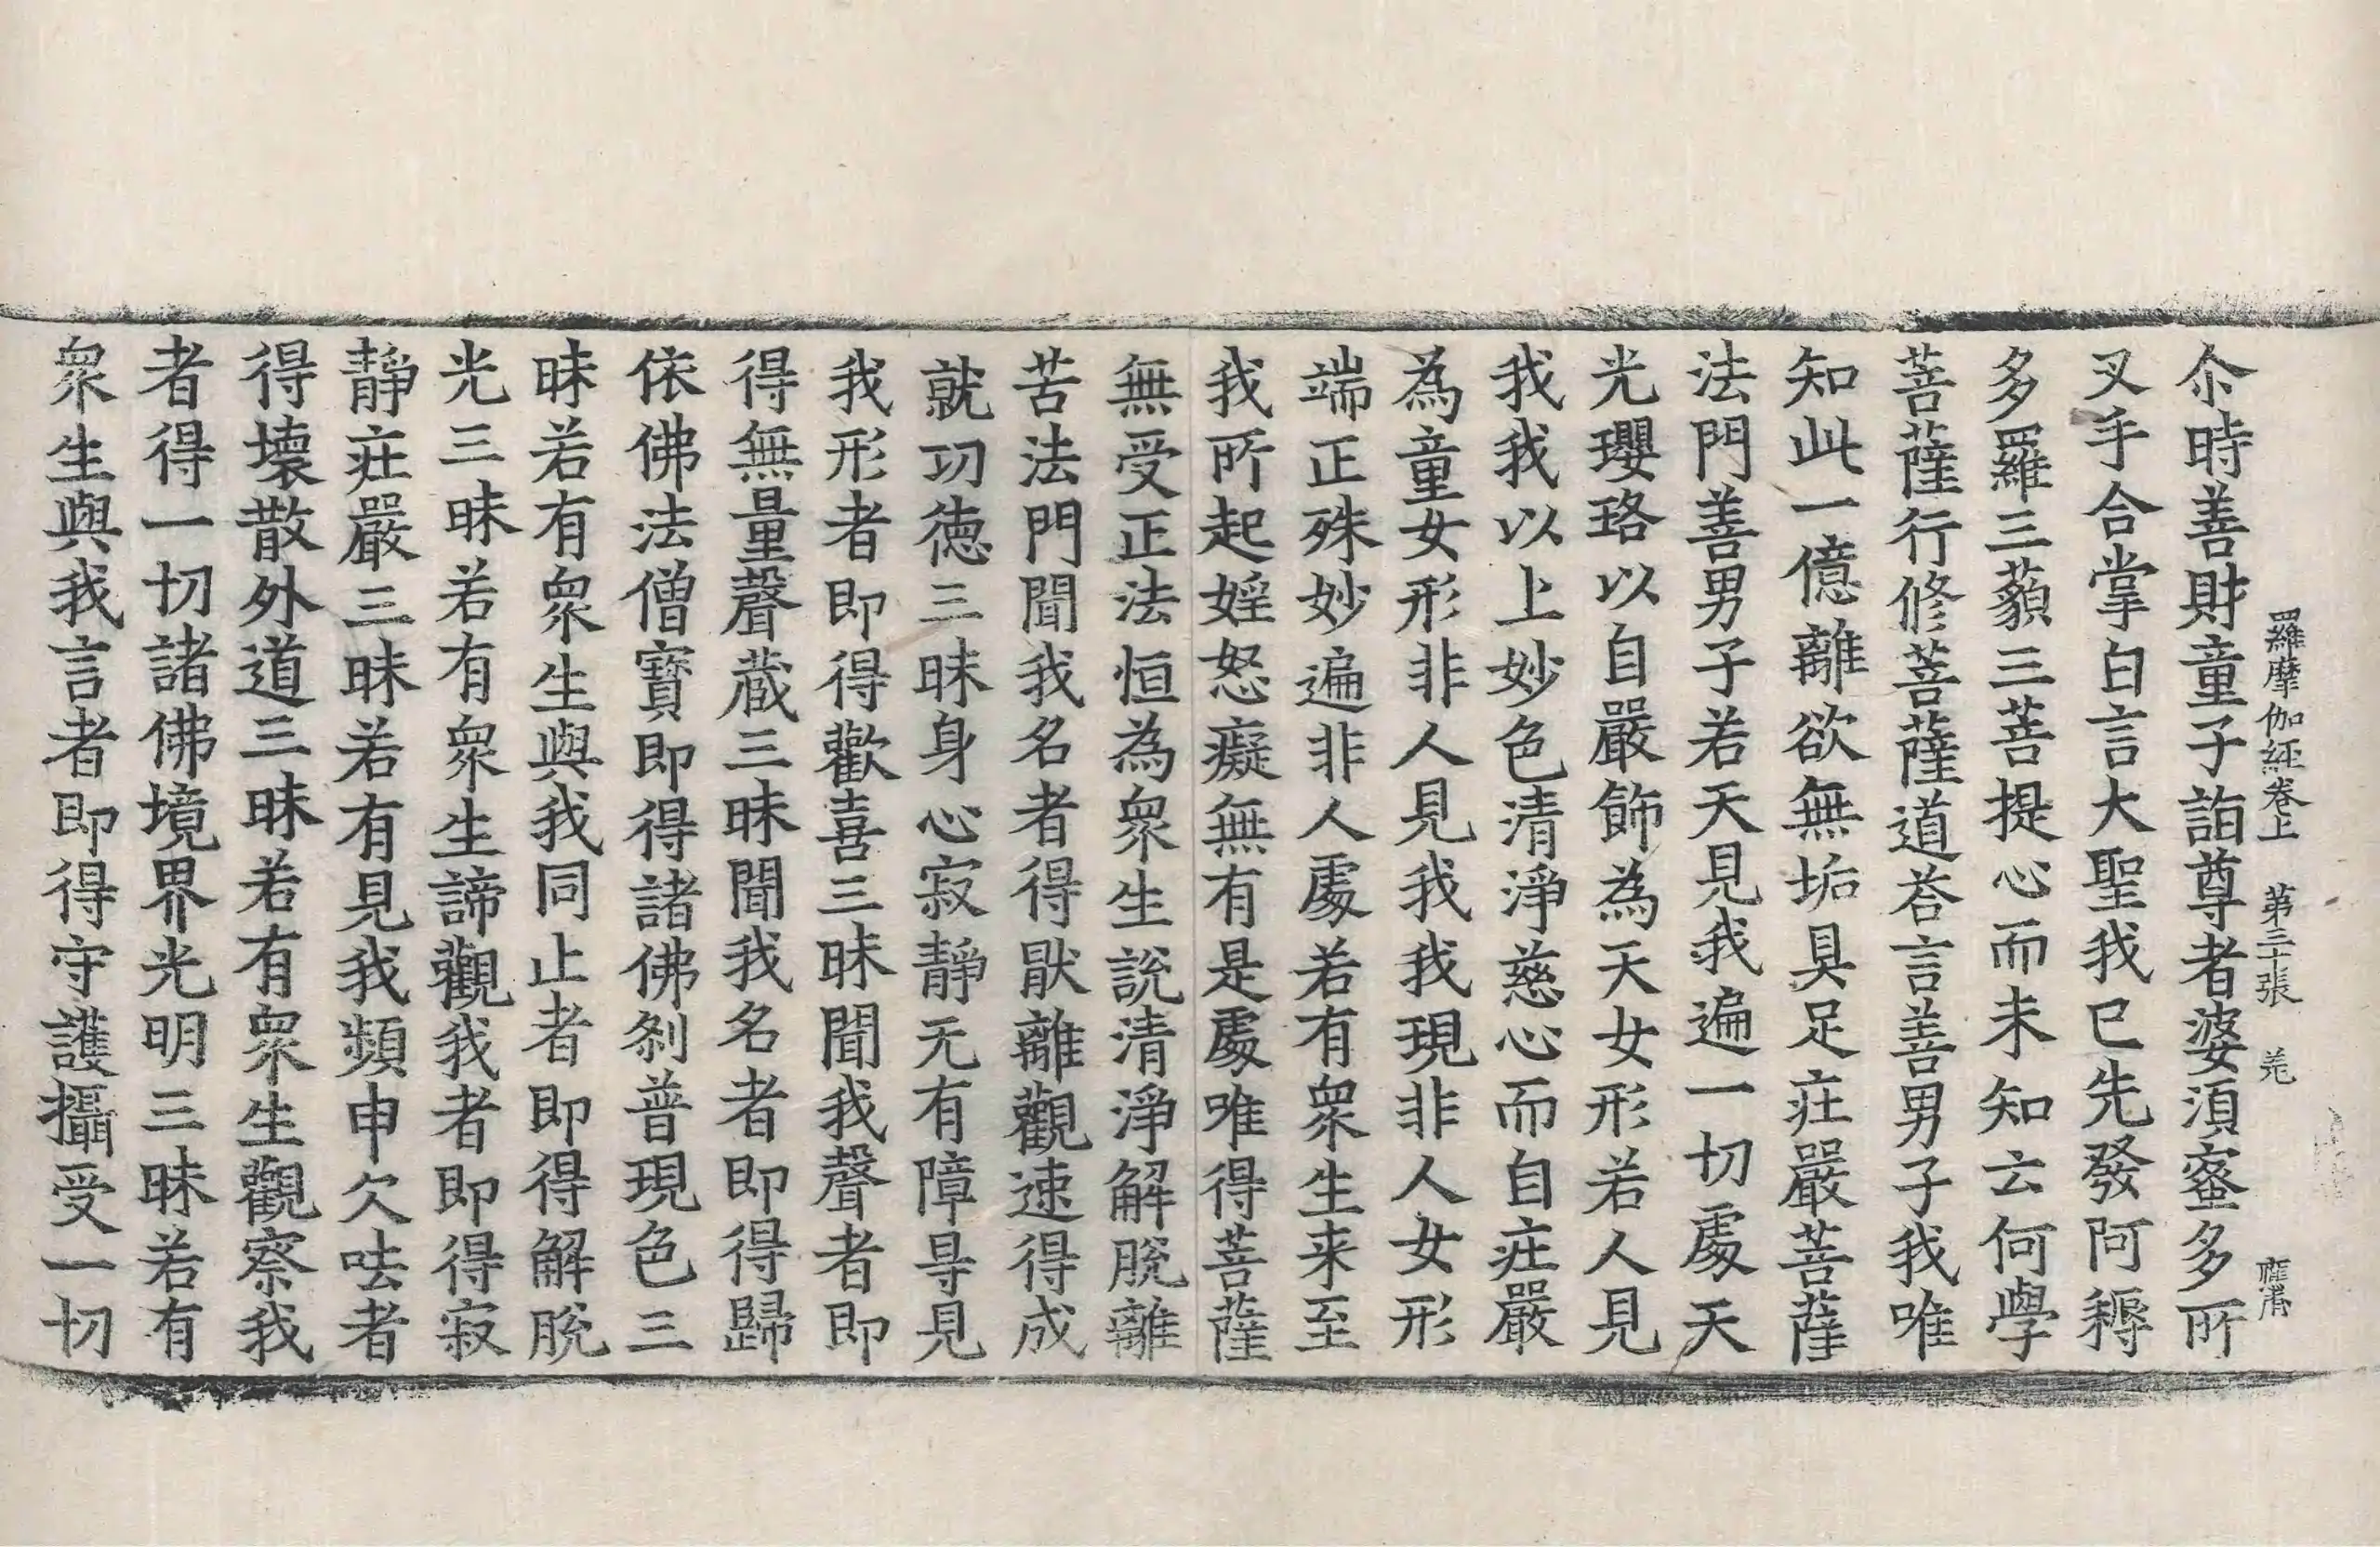 羅摩伽経卷上　第三十張　羌
尒時善財童子詣尊者婆湏蜜多所
叉手合掌白言大聖我已先發阿耨
多羅三藐三菩提心而未知云何學
菩薩行修菩薩道荅言善男子我唯
知此一億離欲無垢具足庄嚴菩薩
法門善男子若天見我遍一切處天
光瓔珞以自嚴飾為天女形若人見
我我以上妙色清淨慈心而自庄嚴
為童女形非人見我我現非人女形
端正殊妙遍非人處若有衆生来至
我所起婬怒癡無有是處唯得菩薩
無受正法恒為衆生說清淨解脫離
苦法門聞我名者得猒離觀速得成
就功德三昧身心寂靜无有障㝵見
我形者即得歡喜三昧聞我聲者即
得無量聲蔵三昧聞我名者即得歸
依佛法僧寶即得諸佛刹普現色三
昧若有衆生與我同止者即得解脫
光三昧若有衆生諦觀我者即得寂
靜庄嚴三昧若有見我頻申欠呿者
得壞散外道三昧若有衆生觀察我
者得一切諸佛境界光明三昧若有
衆生與我言者即得守護攝受一切